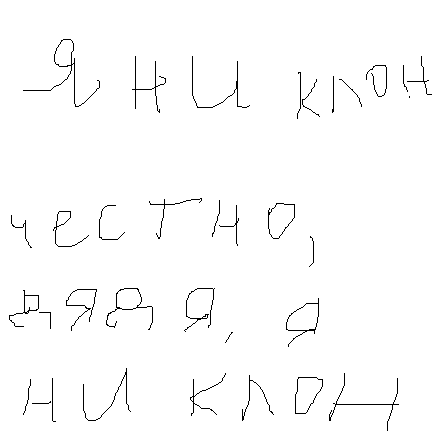 Я НИ КЛОН
ЧЕСТНО,
ДЯДЯ, Я
НИ КЛОН